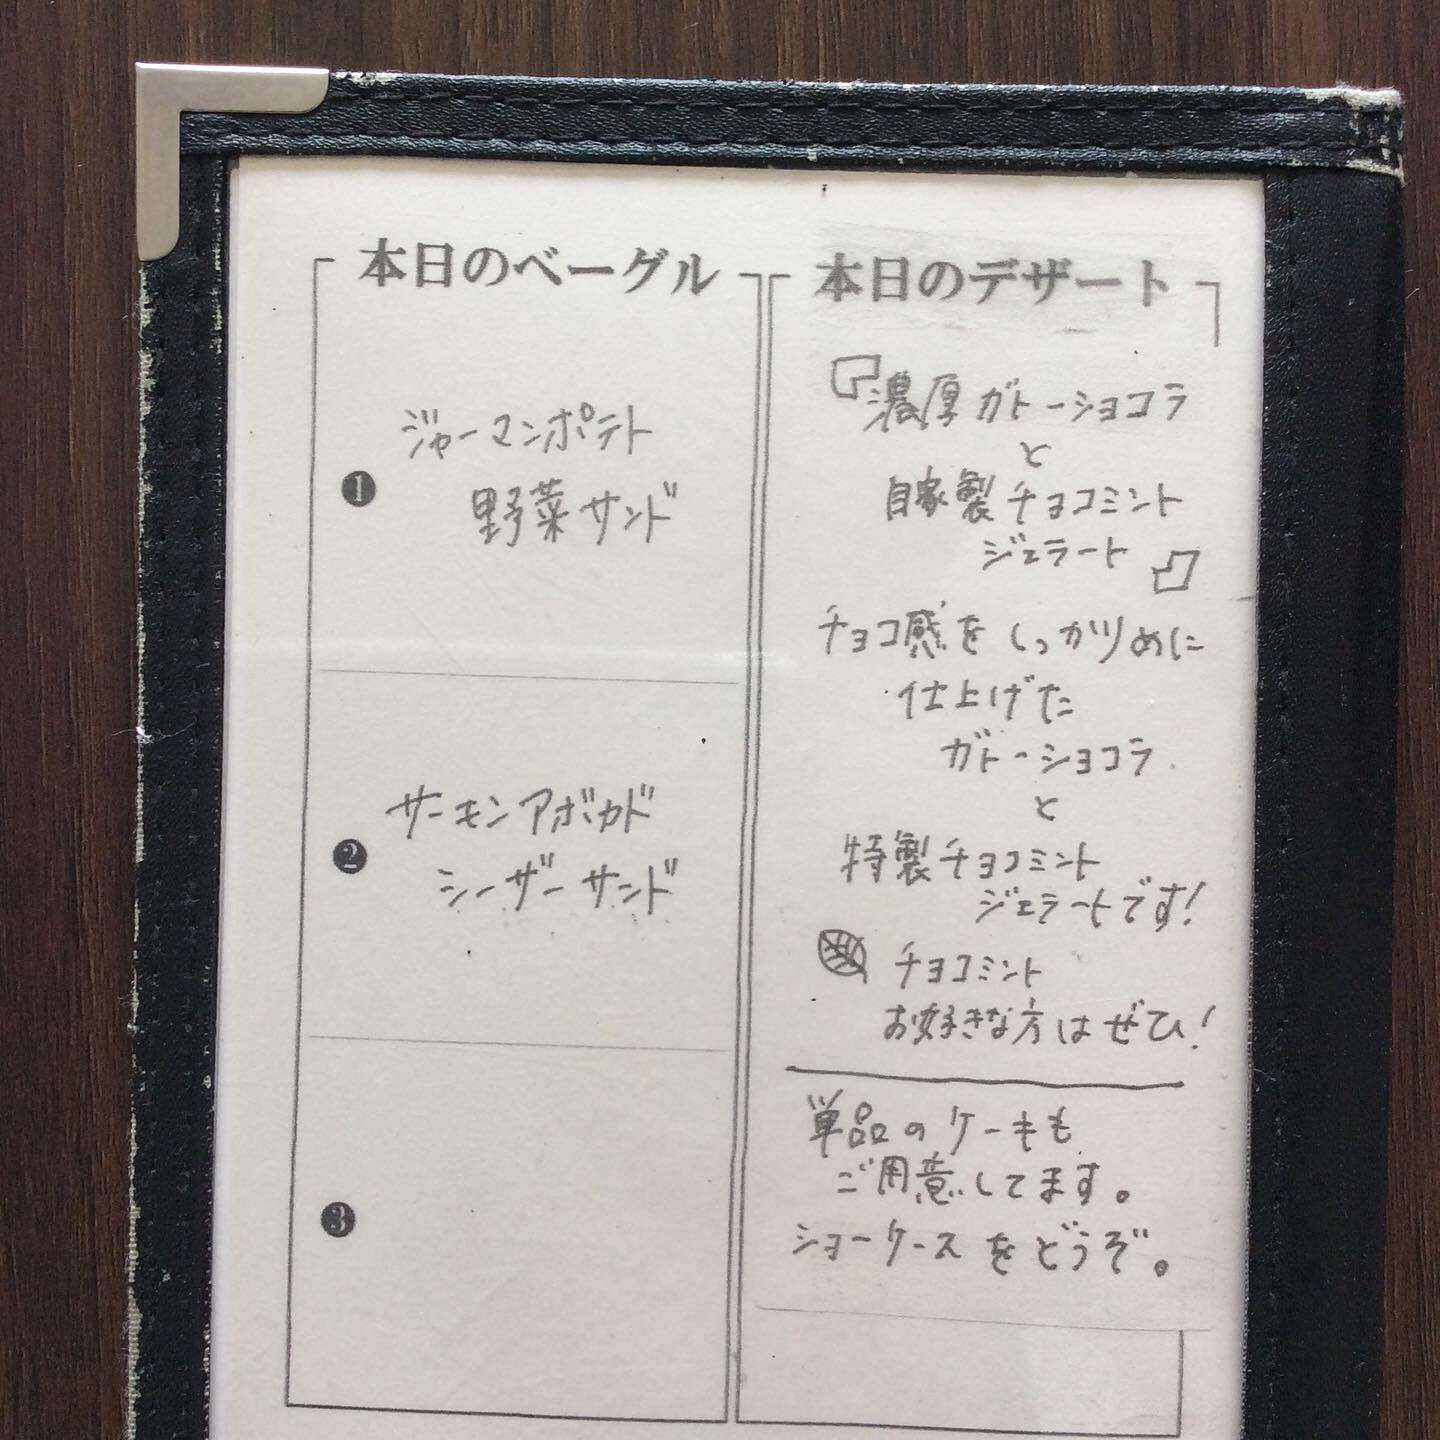 本日のベーグル
❶
ジャーマンポテト
野菜サンド
❷
サーモンアボカド
シーザーサンド
❸
本日のデザート
『濃厚ガトーショコラ
と
自家製チョコミント
ジェラート』
チョコ感をしっかりめに
仕上げた
ガトーショコラ
と
特製チョコミント
ジェラートです!
チョコミント
お好きな方はぜひ!
単品のケーキも
ご用意してます。
ショーケースをどうぞ。